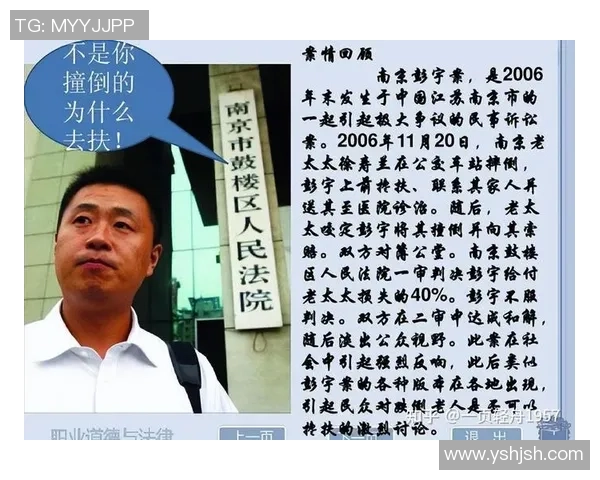 TG: MYYJJPP
不是你
撞倒的
为什么
去扶！
南京市鼓楼区人民法院
案情回顾
南京彭宇案，是2006
年末发生于中国江苏南京市的
一起引起极大争议的民事诉讼
案。2006年11月20日，南京老
太太徐寿兰在公交车站摔倒，
彭宇上前搀扶、联系其家人并
送其至医院诊治。随后，老太
太咬定彭宇将其撞倒并向其索
赔。双方对簿公堂。南京鼓楼
区人民法院一审判决彭宇给付
老太太损失的40%。彭宇不服
判决。双方在二审中达成和解，
随后淡出公众视野。此案在社
会中引起强烈反响，此后类似
彭宇案的各种版本在各地出现，
引起民众对跌倒老人是否可以
搀扶的激烈讨论。
知乎 @一页轻舟1957
职业道德与法律
上一页
下一页
退 出
www.yshjsh.com